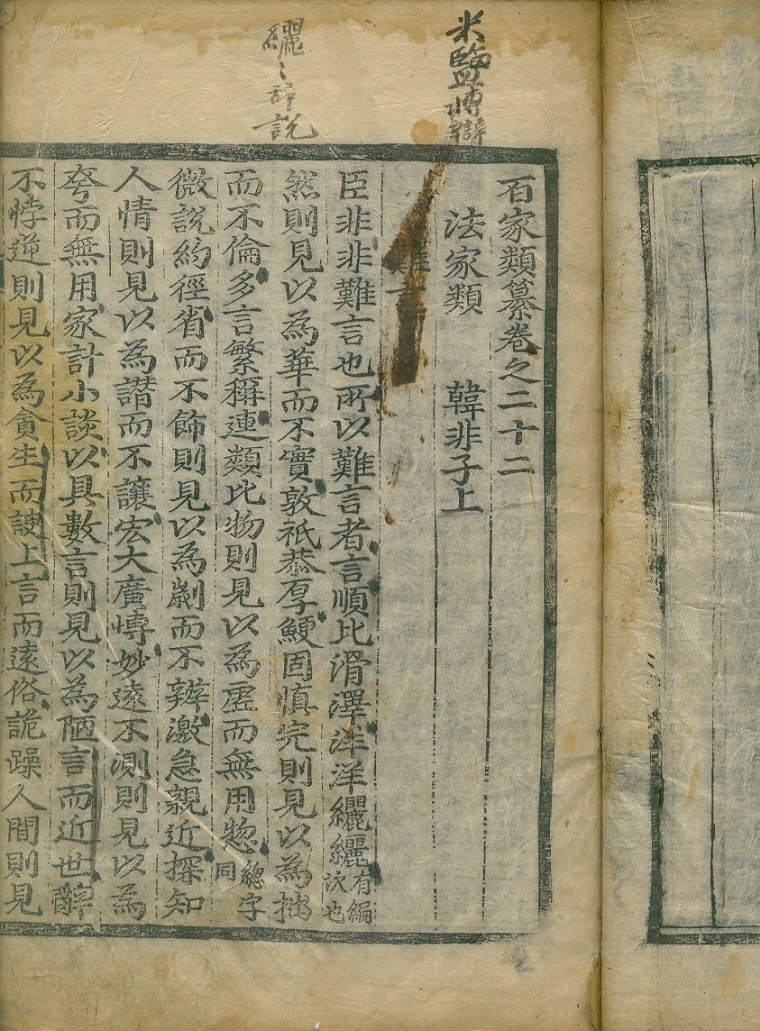 米鹽博辯
纚〻辞說
百家類纂卷之二十二
法家類　韓非子上
難言
臣非非難言也所以難言者言順比滑澤洋洋纚纚有編次也
然則見以為華而不實敦祇恭厚鯁固慎完則見以為拙
而不倫多言繁稱連類比物則見以為虛而無用惣總字同
微說約徑省而不飾則見以為劌而不辨激急親近探知
人情則見以為譖而不讓宏大廣博妙遠不測則見以為
夸而無用家計小談以具數言則見以為陋言而近世辭
不悖逆則見以為貪生而諛上言而遠俗詭躁人間則見